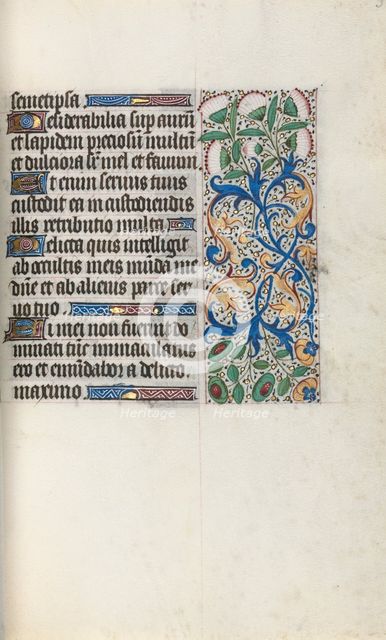 semetipsa
Desiderabilia sup aurū
et lapidem preciosū multū
et dulciora sr mel et fauum
Etenim seruus tuus
custodit ea in custodiendis
illis retributio multa
Delicta quis intelligit
ab occultis meis mūda me
dn̄e et ab alienis parce ser
uo tuo
Si mei non fuerint do
minati tūc immaculatus
ero et emūdabor a delicto
maximo
Heritage
Heritage
Heritage
Heritage